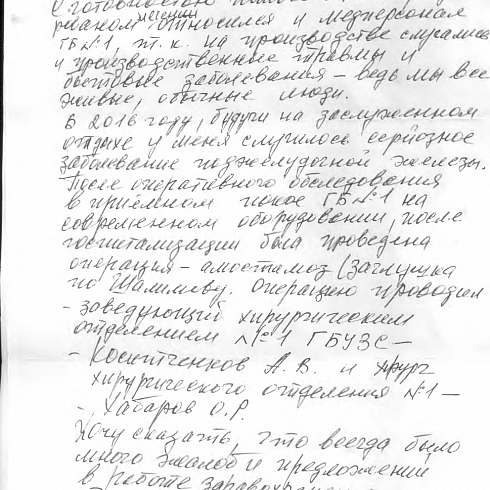 С готовностью
относился и медперсонал
ГБ №1, т.к. на производстве случались
и производственные травмы и
бытовые заболевания – ведь мы все
живые, обычные люди.
В 2016 году, будучи на заслуженном
отдыхе у меня случилось серьёзное
заболевание поджелудочной железы.
После оперативного обследования
в приёмном покое ГБ №1 на
современном оборудовании, после
госпитализации была проведена
операция – амостамоз (заглушка
по Шалимову. Операцию проводил
- заведующий хирургическим
отделением №1 ГБУЗС –
- Коситченков А.В. и хирург
хирургического отделения №1 –
- Хабаров О.Р.
Хочу сказать, что всегда было
много жалоб и предложений
в работе